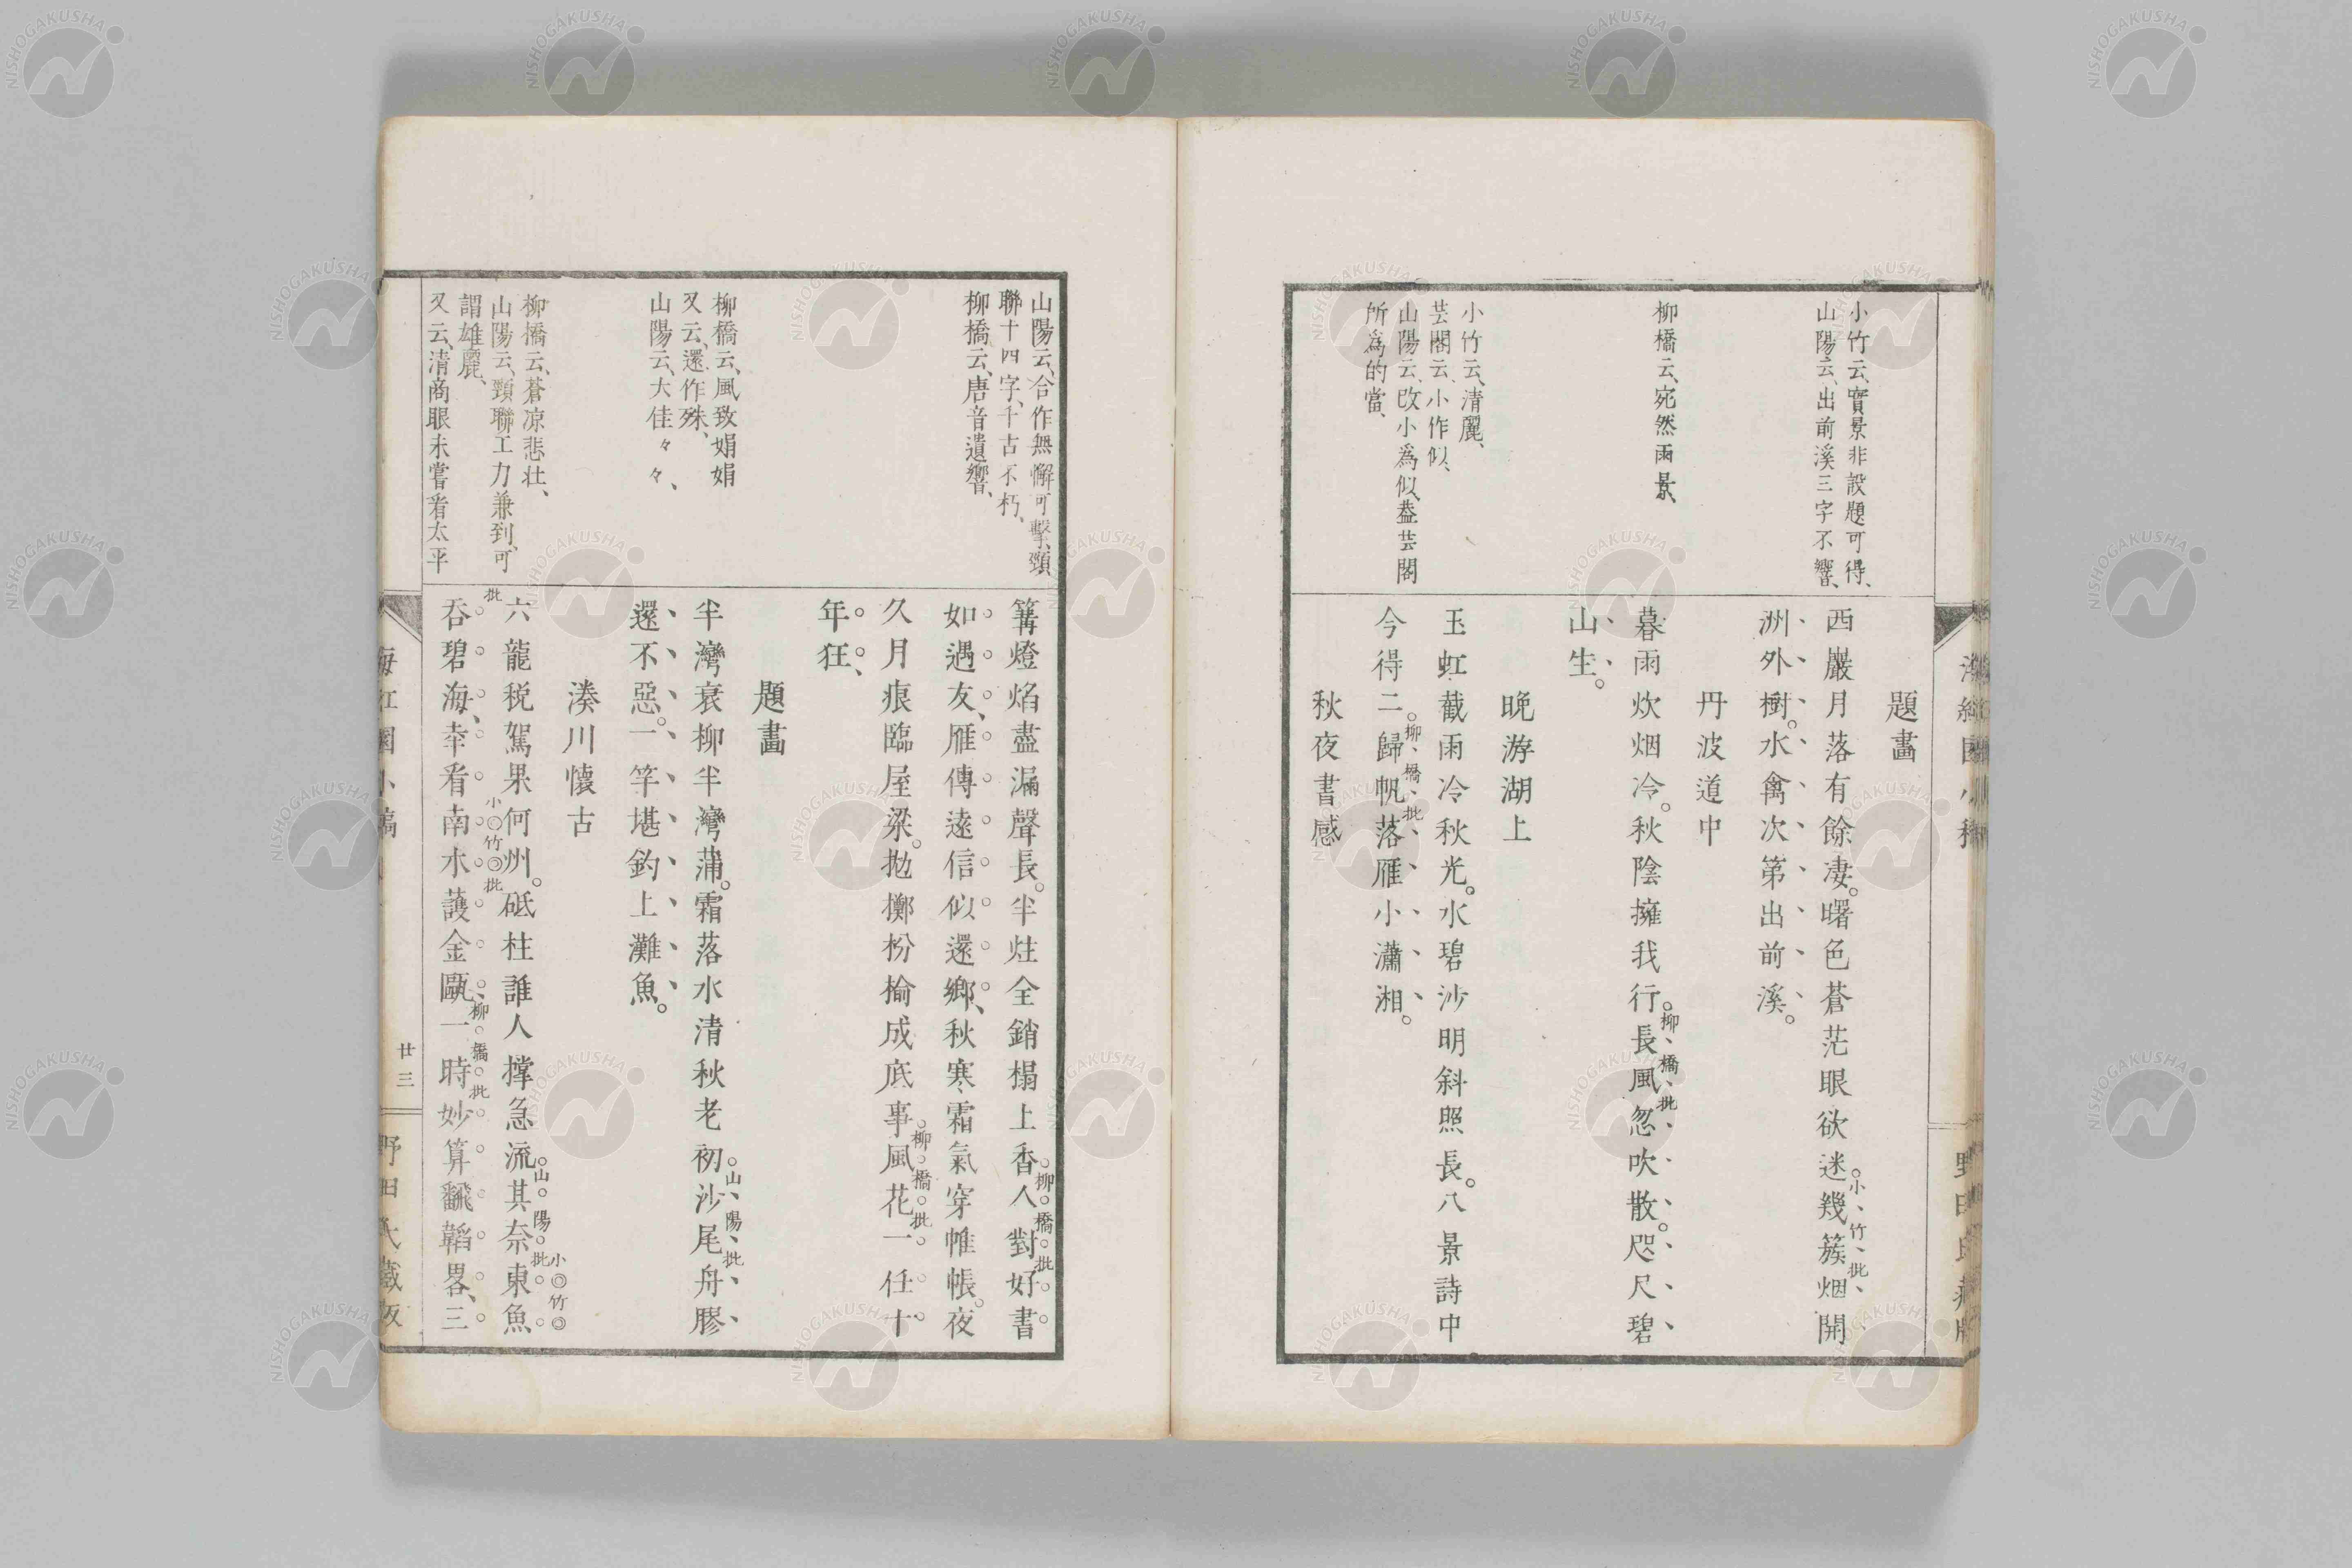 小竹云、實景非設題可得、
山陽云、出前溪三字不響、
柳橋云、宛然雨景、
小竹云、清麗、
芸閣云、小作似、
山陽云、改小爲似、蓋芸閣
所爲的當、
題畵
西巖月落有餘凄。曙色蒼茫眼欲迷。幾簇烟開
小竹批
洲外樹。水禽次第出前溪。
丹波道中
暮雨炊烟冷。秋陰擁我行。長風忽吹散。咫尺碧
柳橋批
山生。
晩游湖上
玉虹截雨冷秋光。水碧沙明斜照長。八景詩中
今得二。歸帆落雁小瀟湘。
柳橋批
秋夜書感
山陽云、合作無懈可擊、頸
聯十四字、千古不朽、
柳橋云、唐音遺響、
柳橋云、風致娟娟
又云、還作殊、
山陽云、大佳々々、
柳橋云、蒼凉悲壮、
山陽云、頸聯工力兼到、可
謂雄麗、
又云、清商眼未嘗看太平
篝燈焰盡漏聲長。半炷全銷榻上香。人對好書
柳橋批
如遇友、雁傳遠信似還鄉、秋寒霜氣穿帷帳。夜
久月痕臨屋梁。抛擲枌楡成底事。風花一任十
柳橋批
年狂、
題畵
半灣衰柳半灣蒲。霜落水清秋老初。沙尾舟膠
山陽批
還不惡。一竿堪釣上灘魚。
湊川懷古
六龍税駕果何州。砥柱誰人撑急流。其奈東魚
山陽批
小竹
批
吞碧海、幸看南木護金甌、一時妙算飜韜畧、三
小竹批
柳橋批
海紅園小稿
廿三
野田氏藏版